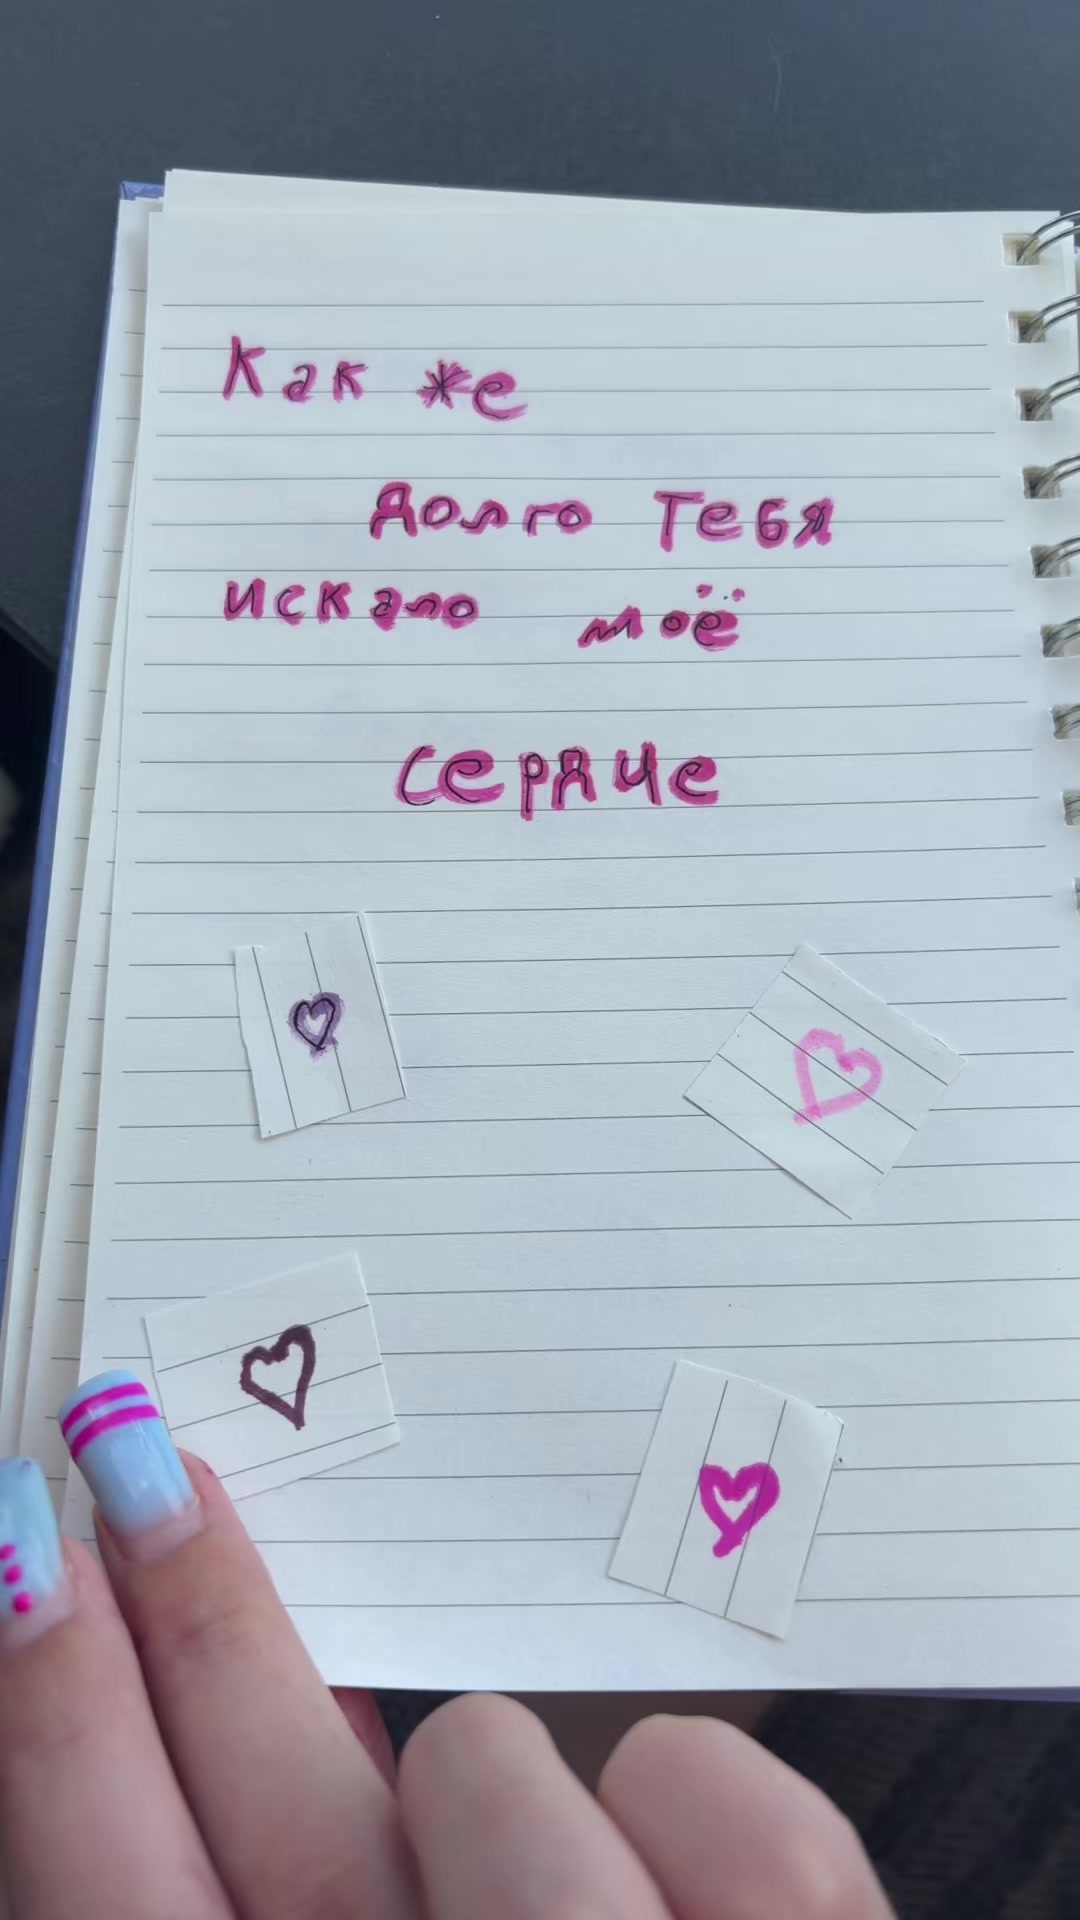 Как же
долго тебя
искало моё
сердце